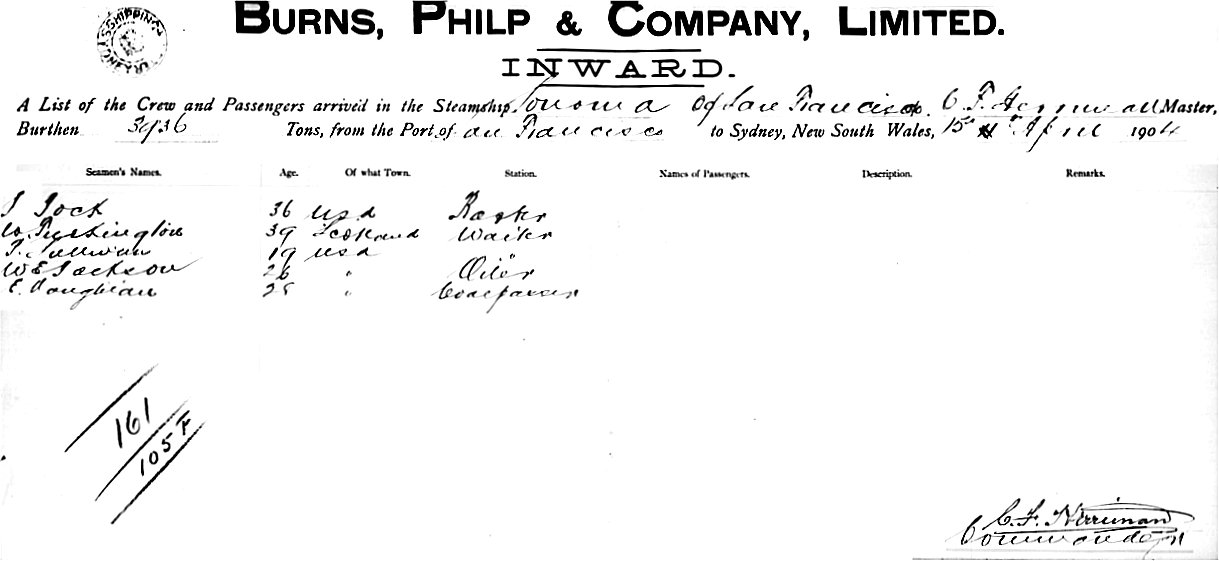 BURNS, PHILP & COMPANY, LIMITED.
INWARD.
A List of the Crew and Passengers arrived in the Steamship Sonoma Of San Francisco. C F Herriman Master,
Burthen 3936 Tons, from the Port of San Francisco to Sydney, New South Wales, 15th April 1904
Seamen's Names. Age. Of what Town. Station. Names of Passengers. Description. Remarks.
36 USA
39 Scotland Waiter
T. Sullivan 19 USA
W E Jackson 26 " Oiler
E. 25 " Coalpasser
161
105 F
C. F. Herriman
Commander